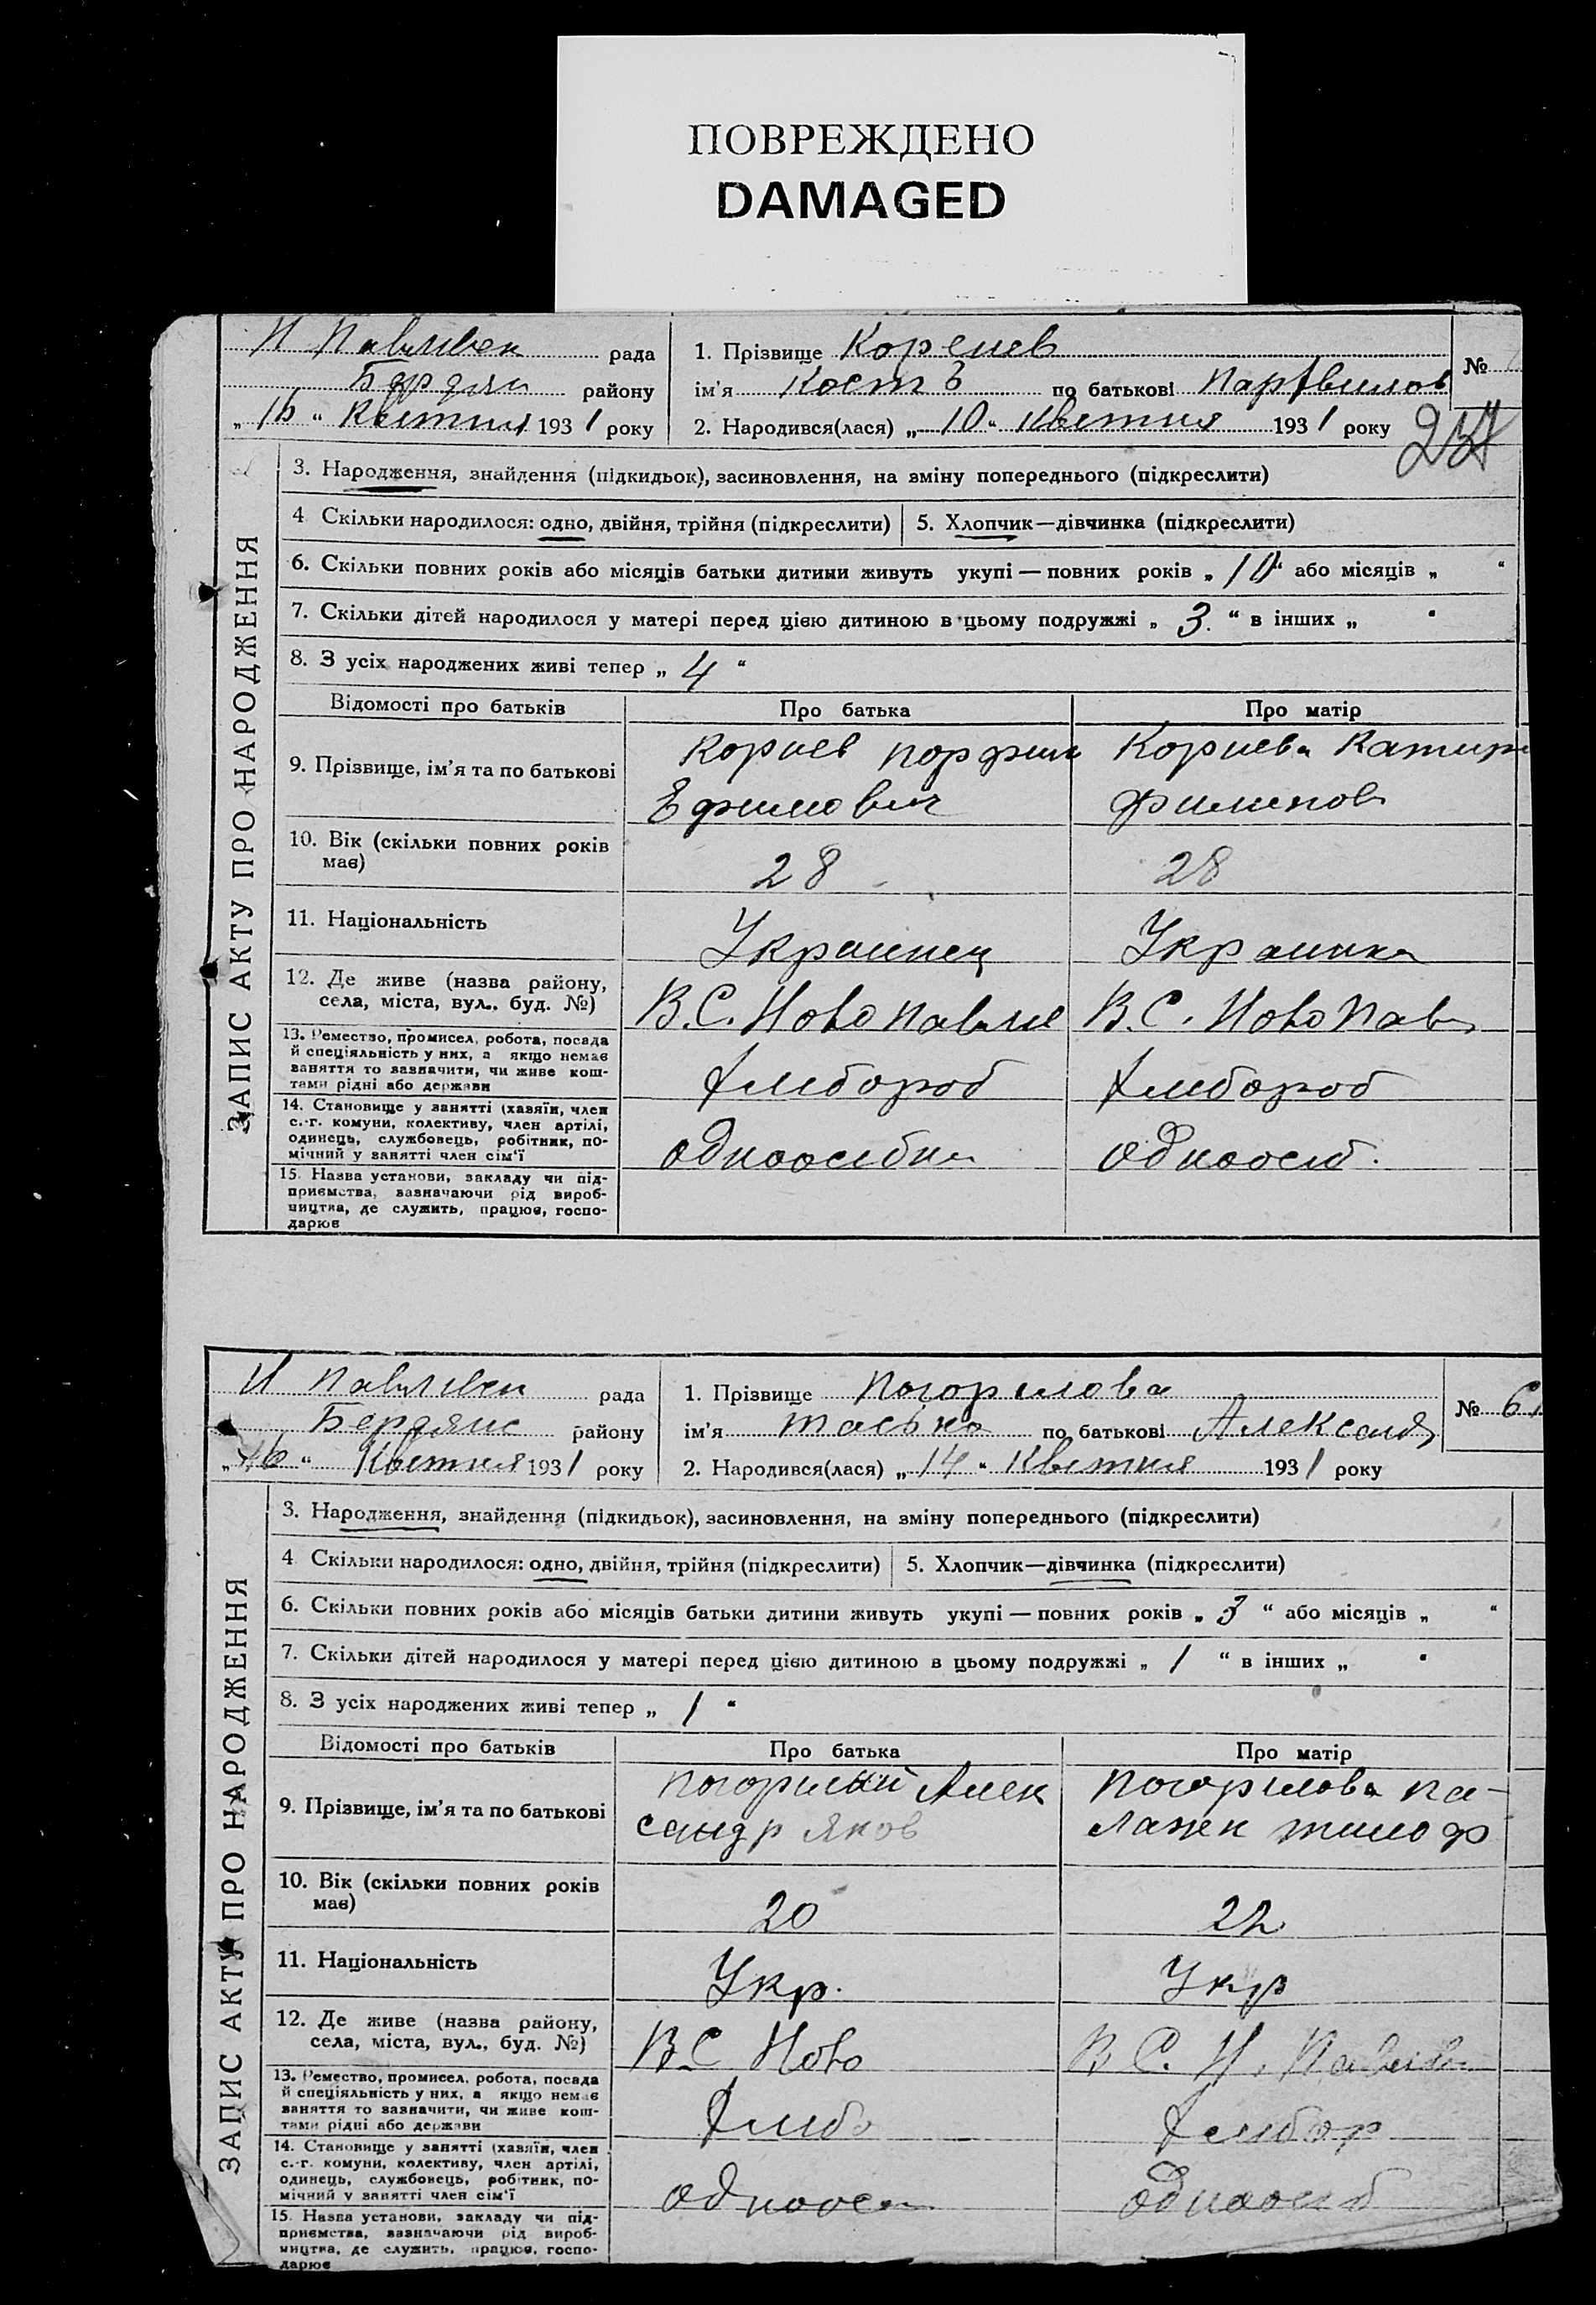 ПОВРЕЖДЕНО
DAMAGED
Н Павлівск рада
Бердян району
„ 16 “ Квітня 1931 року
1. Прізвище Коренев
ім'я Кость по батькові
2. Народився(лася) „ 10 “ Квітня 1931 року
№
3. Народження, знайдення (підкидьок), засиновлення, на зміну попереднього (підкреслити)
4 Скільки народилося: одно, двійня, трійня (підкреслити) 5. Хлопчик—дівчинка (підкреслити)
6. Скільки повних років або місяців батьки дитини живуть укупі — повних років „ 10 “ або місяців „ “
7. Скільки дітей народилося у матері перед цією дитиною в цьому подружжі „ 3. “ в інших „ “
8. З усіх народжених живі тепер „ 4 “
ЗАПИС АКТУ ПРО НАРОДЖЕННЯ
Відомості про батьків Про батька Про матір
9. Прізвище, ім'я та по батькові
Корнев Порфил
Ефимович
Корнева Катир
Филипов
10. Вік (скільки повних років має)
28 28
11. Національність
Украинец Украинка
12. Де живе (назва району, села, міста, вул., буд. №)
В.С. Ново Павлів В.С. Ново Пав
13. Ремество, промисел, робота, посада
й спеціяльність у них, а якщо немає
заняття то зазначити, чи живе кош-
тами рідні або держави
Хлибороб Хлибороб
14. Становище у занятті (хазяїн, член
с.-г. комуни, колективу, член артілі,
одинець, службовець, робітник, по-
мічний у занятті член сім'ї
одноосібн одноосіб.
15. Назва установи, закладу чи під-
приємства, зазначаючи рід вироб-
ництва, де служить, працює, госпо-
дарює
Н Павлівск рада
Бердянс району
„ 16 “ Квітня 1931 року
1. Прізвище Погорилова
ім'я Таська по батькові Александ
2. Народився(лася) „ 14 “ Квітня 1931 року
№ 61
3. Народження, знайдення (підкидьок), засиновлення, на зміну попереднього (підкреслити)
4 Скільки народилося: одно, двійня, трійня (підкреслити) 5. Хлопчик—дівчинка (підкреслити)
6. Скільки повних років або місяців батьки дитини живуть укупі — повних років „ 3 “ або місяців „ “
7. Скільки дітей народилося у матері перед цією дитиною в цьому подружжі „ 1 “ в інших „ “
8. З усіх народжених живі тепер „ 1 “
ЗАПИС АКТУ ПРО НАРОДЖЕННЯ
Відомості про батьків Про батька Про матір
9. Прізвище, ім'я та по батькові
Погорилий Алек
сандр Яков
Погорилова Па-
лажек Тимоф
10. Вік (скільки повних років має)
20 22
11. Національність
Укр. Укр
12. Де живе (назва району, села, міста, вул., буд. №)
В.С Ново В С. Н. Павлів
13. Ремество, промисел, робота, посада
й спеціяльність у них, а якщо немає
заняття то зазначити, чи живе кош-
тами рідні або держави
Хлибо Хлибор
14. Становище у занятті (хазяїн, член
с.-г. комуни, колективу, член артілі,
одинець, службовець, робітник, по-
мічний у занятті член сім'ї
одноос одноосіб
15. Назва установи, закладу чи під-
приємства, зазначаючи рід вироб-
ництва, де служить, працює, госпо-
дарює